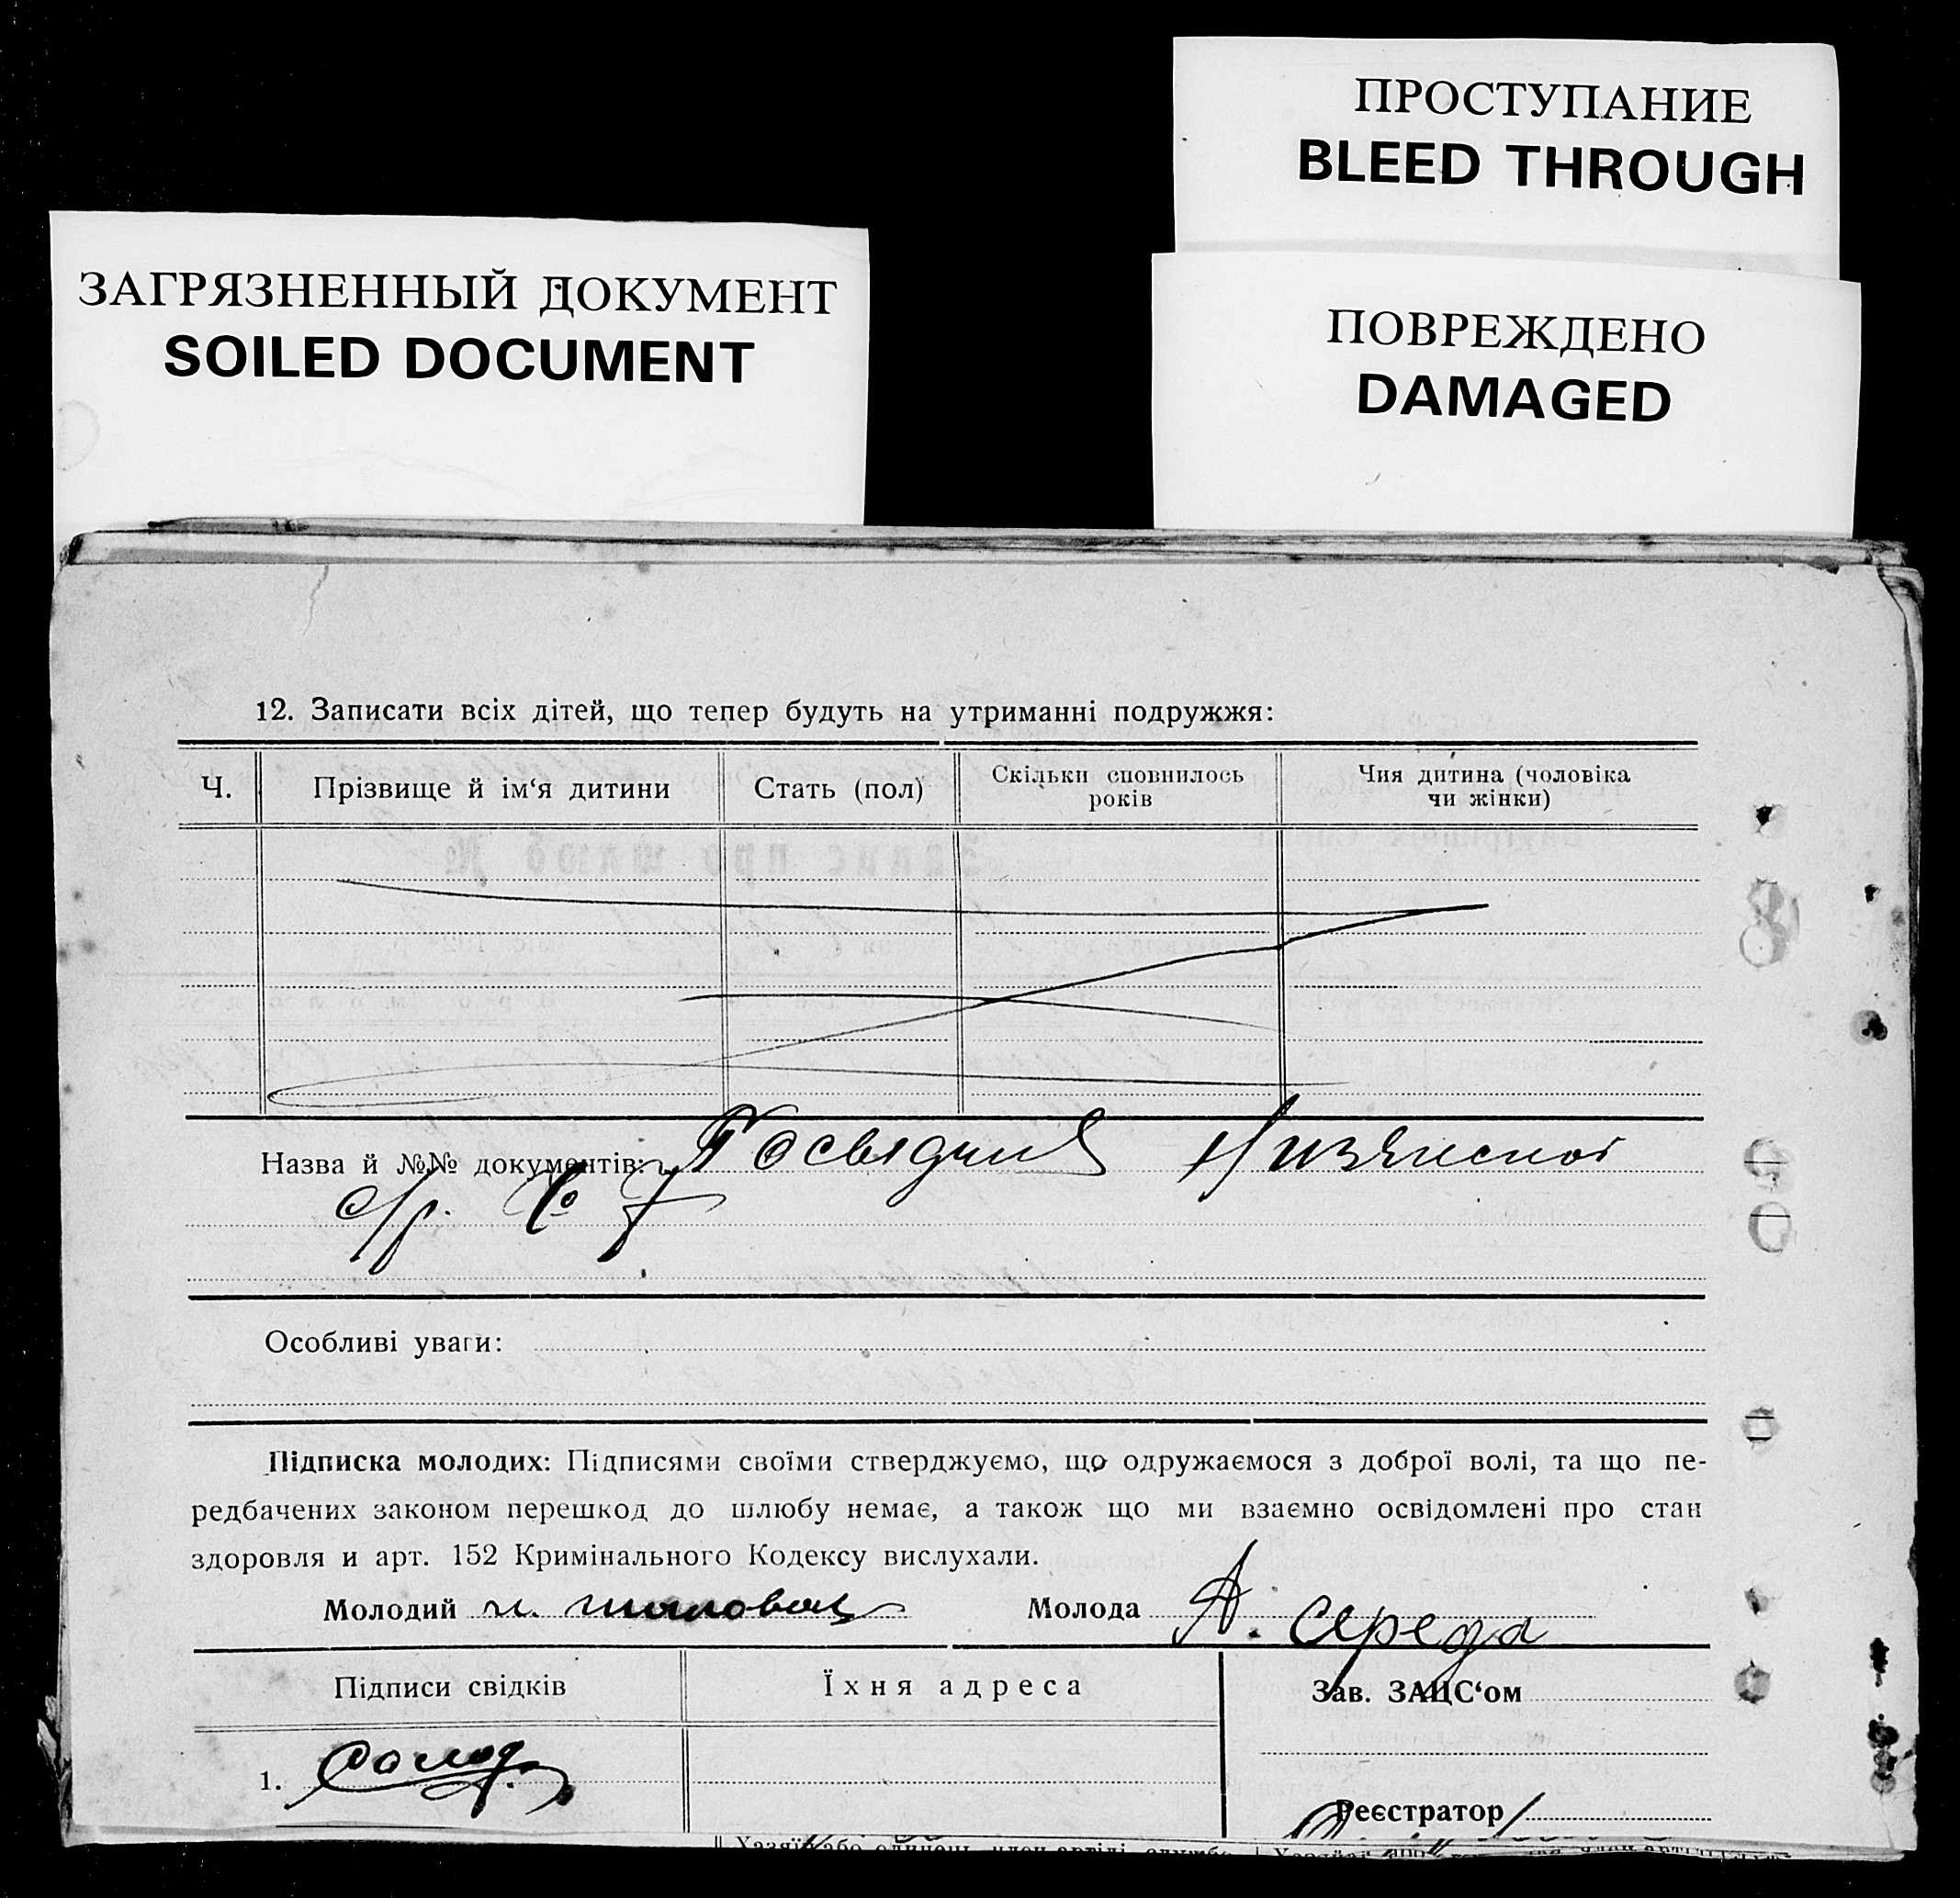 ПРОСТУПАНИЕ
BLEED THROUGH
ЗАГРЯЗНЕННЫЙ ДОКУМЕНТ
SOILED DOCUMENT
ПОВРЕЖДЕНО
DAMAGED
12. Записати всіх дітей, що тепер будуть на утриманні подружжя:
Ч. Прізвище й ім‘я дитини Стать (пол) Скільки сповнилось років Чия дитина (чоловіка чи жінки)
Назва й №№ документів:
Особливі уваги:
Підписка молодих: Підписями своїми стверджуємо, що одружаємося з доброї волі, та що пе-
редбачених законом перешкод до шлюбу немає, а також що ми взаємно освідомлені про стан
здоровля и арт. 152 Кримінального Кодексу вислухали.
Молодий Молода А. Середа
Підписи свідків Їхня адреса Зав. ЗАЦС‘ом
1.
Реєстратор